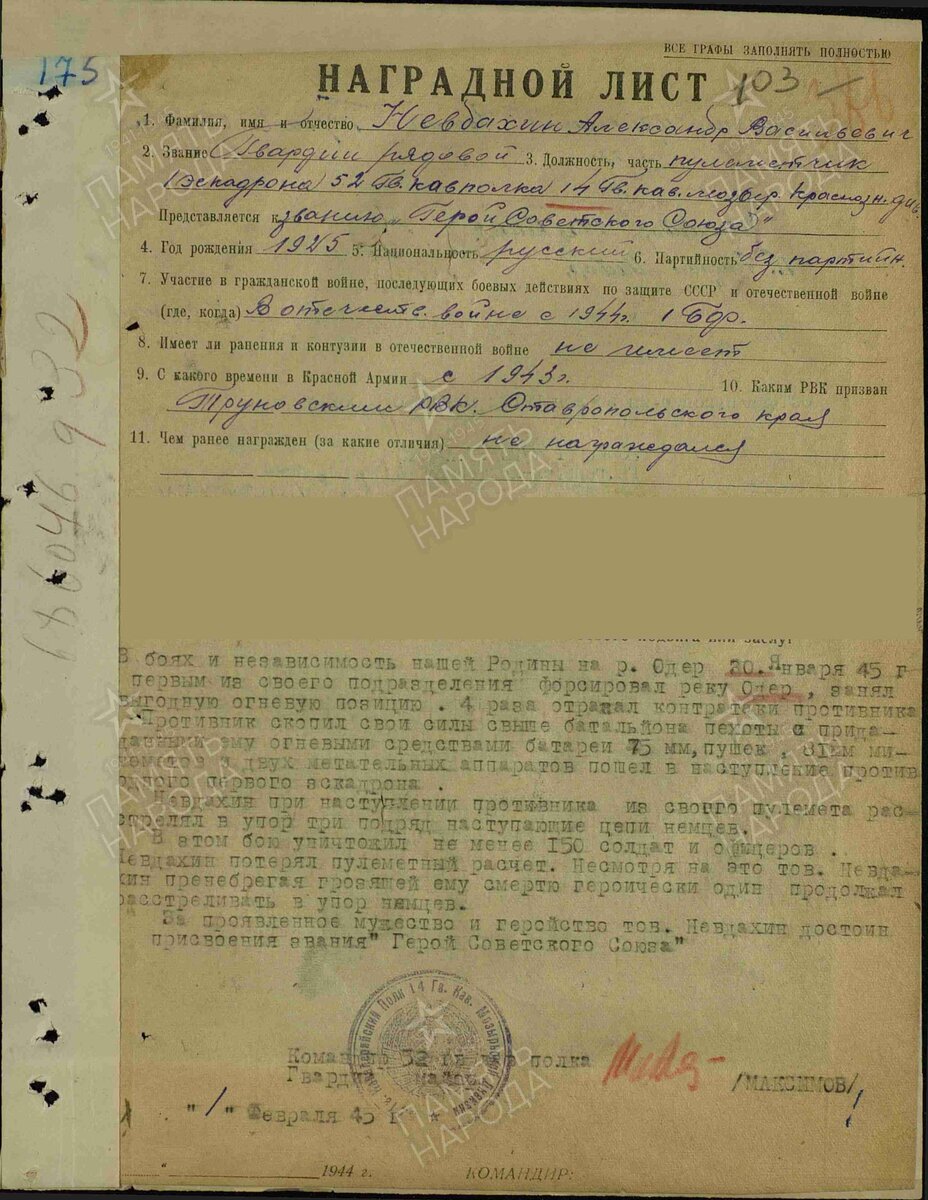 ВСЕ ГРАФЫ ЗАПОЛНЯТЬ ПОЛНОСТЬЮ
175
НАГРАДНОЙ ЛИСТ 103
1. Фамилия, имя и отчество Невдахин Александр Васильевич
2. Звание Гвардии рядовой 3. Должность, часть пулеметчик
1 эскадрона 52 Гв. кавполка 14 Гв. кав. Мозыр. Краснозн. див.
Представляется к званию "Герой Советского Союза"
4. Год рождения 1925 5. Национальность русский 6. Партийность без партийн.
7. Участие в гражданской войне, последующих боевых действиях по защите СССР и отечественной войне
(где, когда) В отечеств. войне с 1944г. 1 Бф.
8. Имеет ли ранения и контузии в отечественной войне не имеет
9. С какого времени в Красной Армии с 1943г. 10. Каким РВК призван
Труновским РВК. Ставропольского края
11. Чем ранее награжден (за какие отличия) не награждался
В боях и независимость нашей Родины на р. Одер 30. Января 45 г
первым из своего подразделения форсировал реку Одер, занял
выгодную огневую позицию. 4 раза отражал контратаки противника
Противник скопил свои силы свыше батальйона пехоты с прида-
данными ему огневыми средствами батареи 75 мм, пушек. 8ТЕМ ми-
нометов и двух метательных аппаратов пошел в наступление против
одного первого эскадрона.
Невдахин при наступлении противника из своего пулемета рас-
стрелял в упор три подряд наступающие цепи немцев.
В этом бою уничтожил не менее 150 солдат и офицеров.
Невдахин потерял пулеметный расчет. Несмотря на это тов. Невда-
хин пренебрегая грозящей ему смертю героически один продолжал
расстреливать в упор немцев.
За проявленное мужество и геройство тов. Невдахин достоин
присвоения звания "Герой Советского Союза"
Командир 52 гв кав полка
Гвардии майор /МАКСИМОВ/
"1" Февраля 45 г
1944 г. КОМАНДИР:
ПАМЯТЬ
НАРОДА